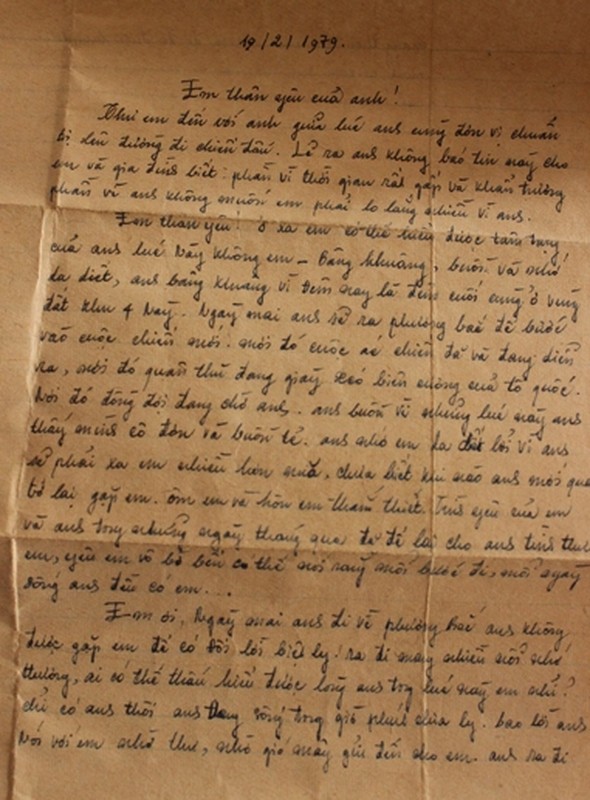 19/2/1979.
Em thân yêu của anh!
Thư em đến với anh giữa lúc anh cùng đơn vị chuẩn
bị lên đường đi chiến đấu. Lẽ ra anh không báo tin này cho
em và gia đình biết: phần vì thời gian rất gấp và khẩn trương
phần vì anh không muốn em phải lo lắng nhiều vì anh.
Em thân yêu! ở xa em có thể hiểu được tâm trạng
của anh lúc này không em - Bâng khuâng, buồn và nhớ
da diết, anh bâng khuâng vì đêm nay là đêm cuối cùng ở vùng
đất khu 4 này. Ngày mai anh sẽ ra phương bắc để bước
vào cuộc chiến mới. nơi đó cuộc ác chiến đã và đang diễn
ra, nơi đó quân thù đang giày xéo biên cương của tổ quốc.
Nơi đó đồng đội đang chờ anh. anh buồn vì những lúc này anh
thấy mình cô đơn và buồn tẻ. anh nhớ em da diết bởi vì anh
sẽ phải xa em nhiều hơn nữa, chưa biết khi nào anh mới quay
trở lại gặp em. ôm em và hôn em thắm thiết. Tình yêu của em
và anh trong những ngày tháng qua đã để lại cho anh tình thương
em, yêu em vô bờ bến có thể nói rằng mỗi bước đi, mỗi ngày
sống anh đều có em...
Em ơi, Ngày mai anh đi về phương Bắc anh không
được gặp em để có đôi lời biệt ly! ra đi mang nhiều nỗi nhớ
thương, ai có thể thấu hiểu được lòng anh trong lúc này em nhỉ?
chỉ có anh thôi anh đang sống trong giờ phút chia ly. bao lời anh
Nói với em nhờ thư, nhờ gió mây gửi đến cho em. anh ra đi